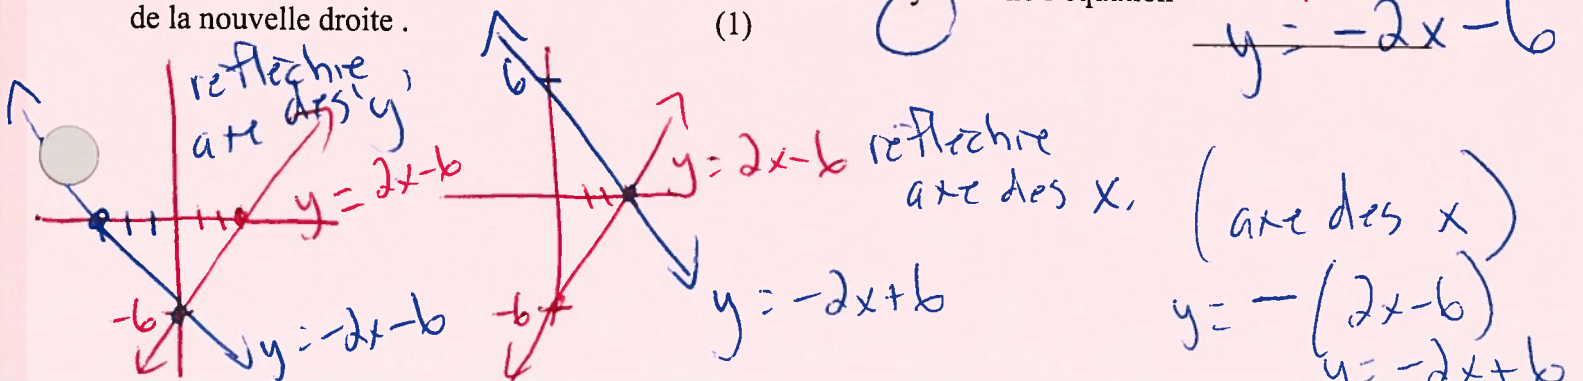 de la nouvelle droite .
(1)
y = -2x-6
réfléchie
axe des 'y'
y = 2x-6
-6
y = -2x-6
6
y = 2x-6
-6
y = -2x+6
réfléchie
axe des x.
(axe des x)
y = -(2x-6)
y = -2x+6